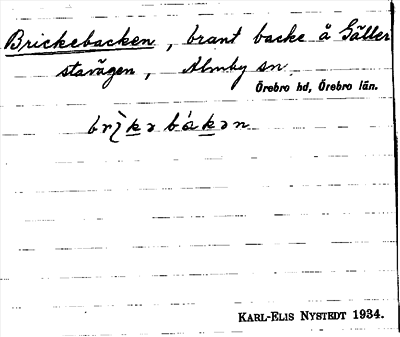 Brickebacken, brant backe å Gäller
stavägen, Almby sn.
Örebro hd, Örebro län.
brìkə bákən
KARL-ELIS NYSTEDT 1934.